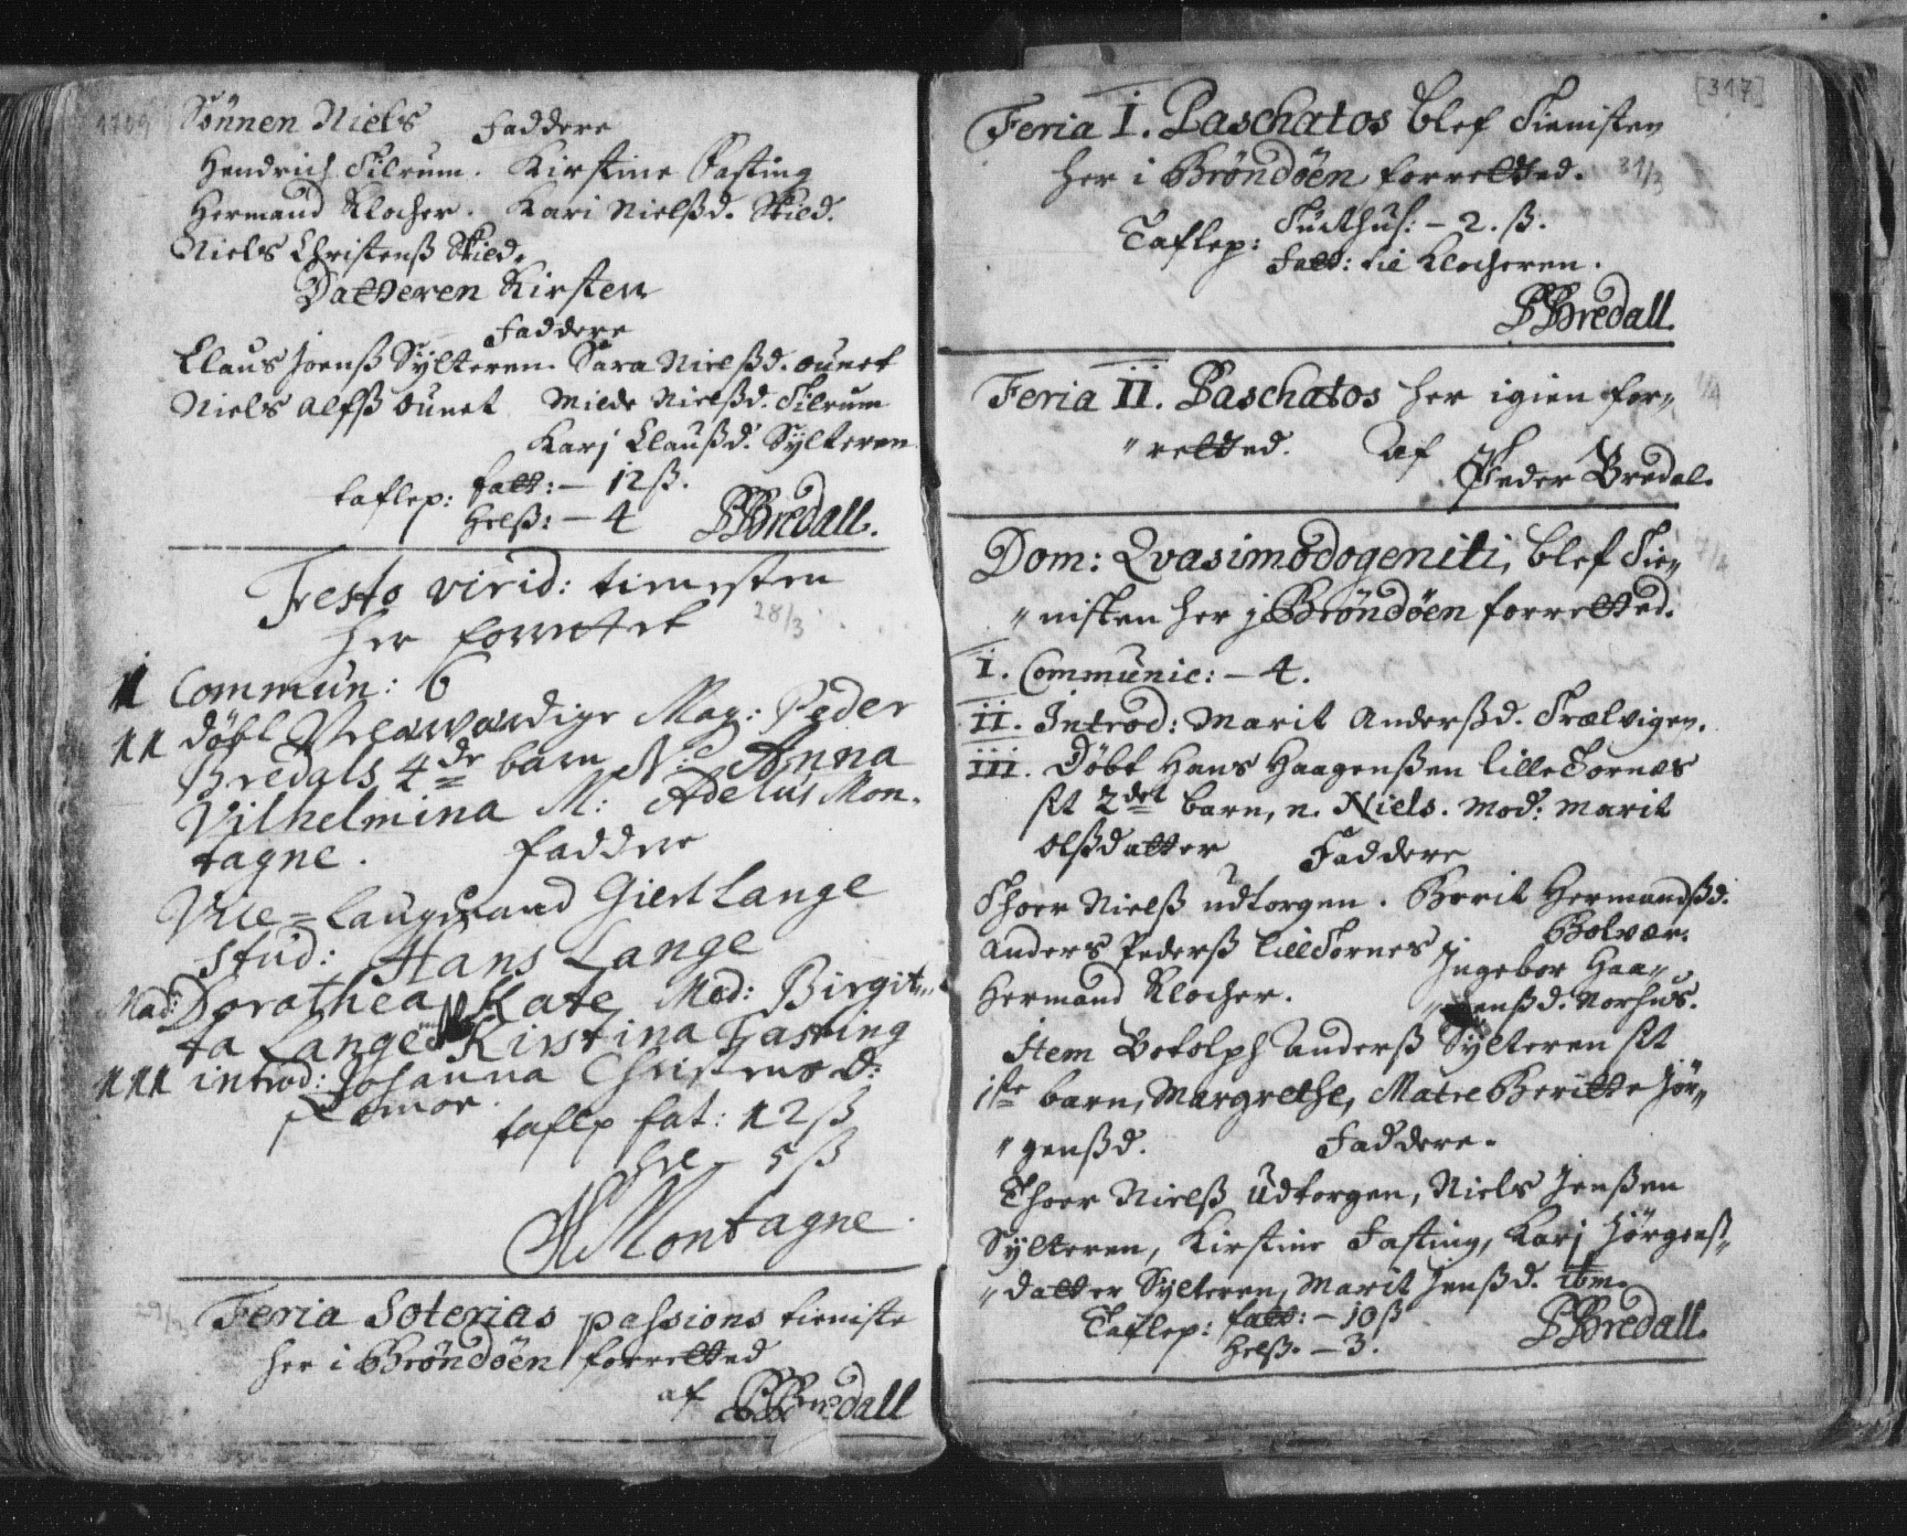 1709
Sönnen Niels Faddere
Hendrich Tilrum. Kirstine Fasting
Hermand Klocher. Kari Nielßd. Skied.
Niels Christenß Skied.
Datteren Kirsten
Faddere
Claus Joenß Sylteren. Sara Nielßd. Ounet
Niels Alfß Ounet Milde Nielßd. Tilrum
Karj Claußd. Sylteren
taflep: fatt: – 12 ß.
Helß: – 4 PBredall.
Festo virid: tienesten
her forrettet 28/3
I Commun: 6
II döbt Velærværdige Mag: Peder
Bredals 4de barn N: Anna
Vilhelmina M: Adelus Mon-
tagne. faddere
Vice=laugmand Giert Lange
stud: Hans Lange
Mad: Dorothea Kate Mad: Birgit
ta Lange Kirstina Fasting
III introd: Johanna Christens d:
taflp fat: 12 ß
5 ß
Montagne
Feria Soterias passions tieniste
her i Bröndöen forretted
af PBredall
[317]
Feria I. Paschatos blef Tienisten
her i Bröndöen forretted. 31/3
Taflep: Tuchthus: – 2. ß.
Fatt: til Klocheren.
PBredall.
Feria II. Paschatos her igien for„ 1/4
„retted. Af Peder Bredal.
Dom: Qvasimodogeniti, blef Tie„ 7/4
„nisten her j Bröndöen forretted.
I. Communic: – 4.
II. Introd: Marit Anderßd. Trælvigen.
III. Döbt Hans Haagenßen lille Tornes
sit 2det barn, n. Niels. Mod: Marit
Olßdatter Faddere
Thoer Nielß udtorgen. Berit Hermandßd.
Bolvær.
Anders Pederß lille Tornes Ingebor Haa„
Hermand Klocher. „genßd. Norhus.
Item Botolph Anderß Sylteren sit
1ste barn, Margrethe, Matre Beritte Jör„
„genßd. Faddere.
Thoer Nielß Udtorgen, Niels Jenßen
Sylteren, Kirstine Fasting, Karj Jörgens„
„datter Sylteren, Marit Jenßd. ibm.
Taflep: fatt: – 10 ß
Helß. – 3. PBredall.